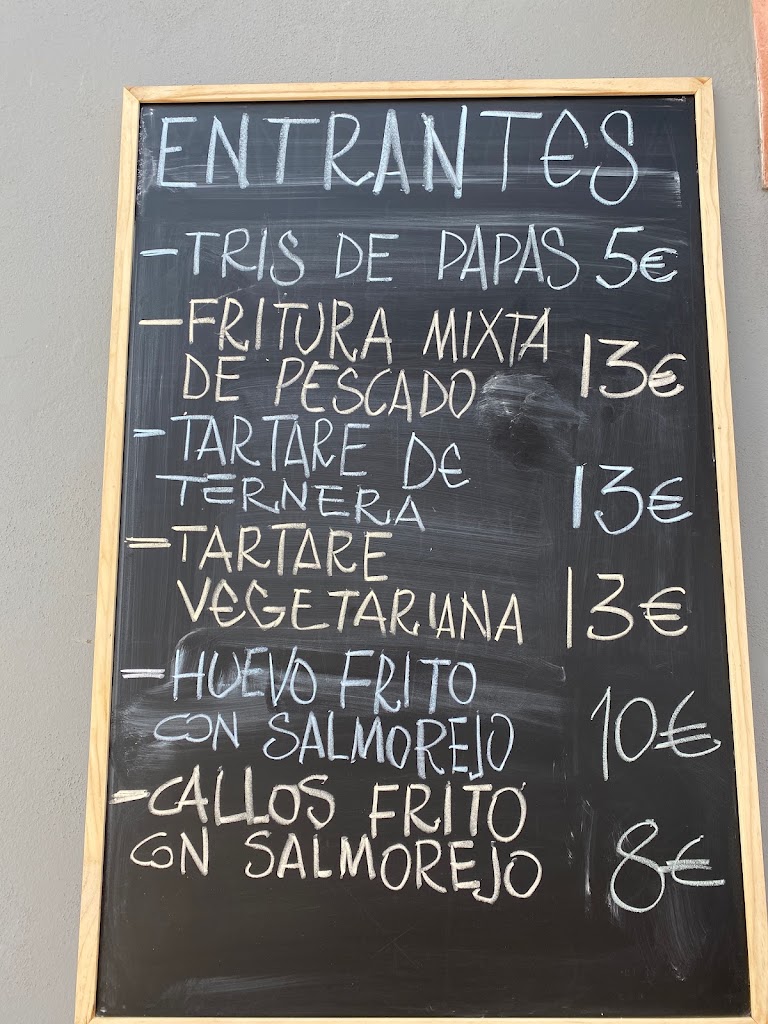 ENTRANTES
- TRIS DE PAPAS 5€
- FRITURA MIXTA
DE PESCADO 13€
- TARTARE DE
TERNERA 13€
- TARTARE
VEGETARIANA 13€
- HUEVO FRITO
CON SALMOREJO 10€
- CALLOS FRITO
CON SALMOREJO 8€